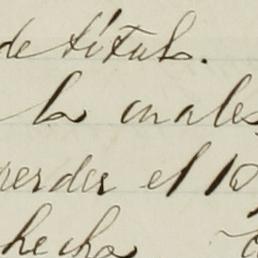 de títul.
la cuales
perder el 1
hecha